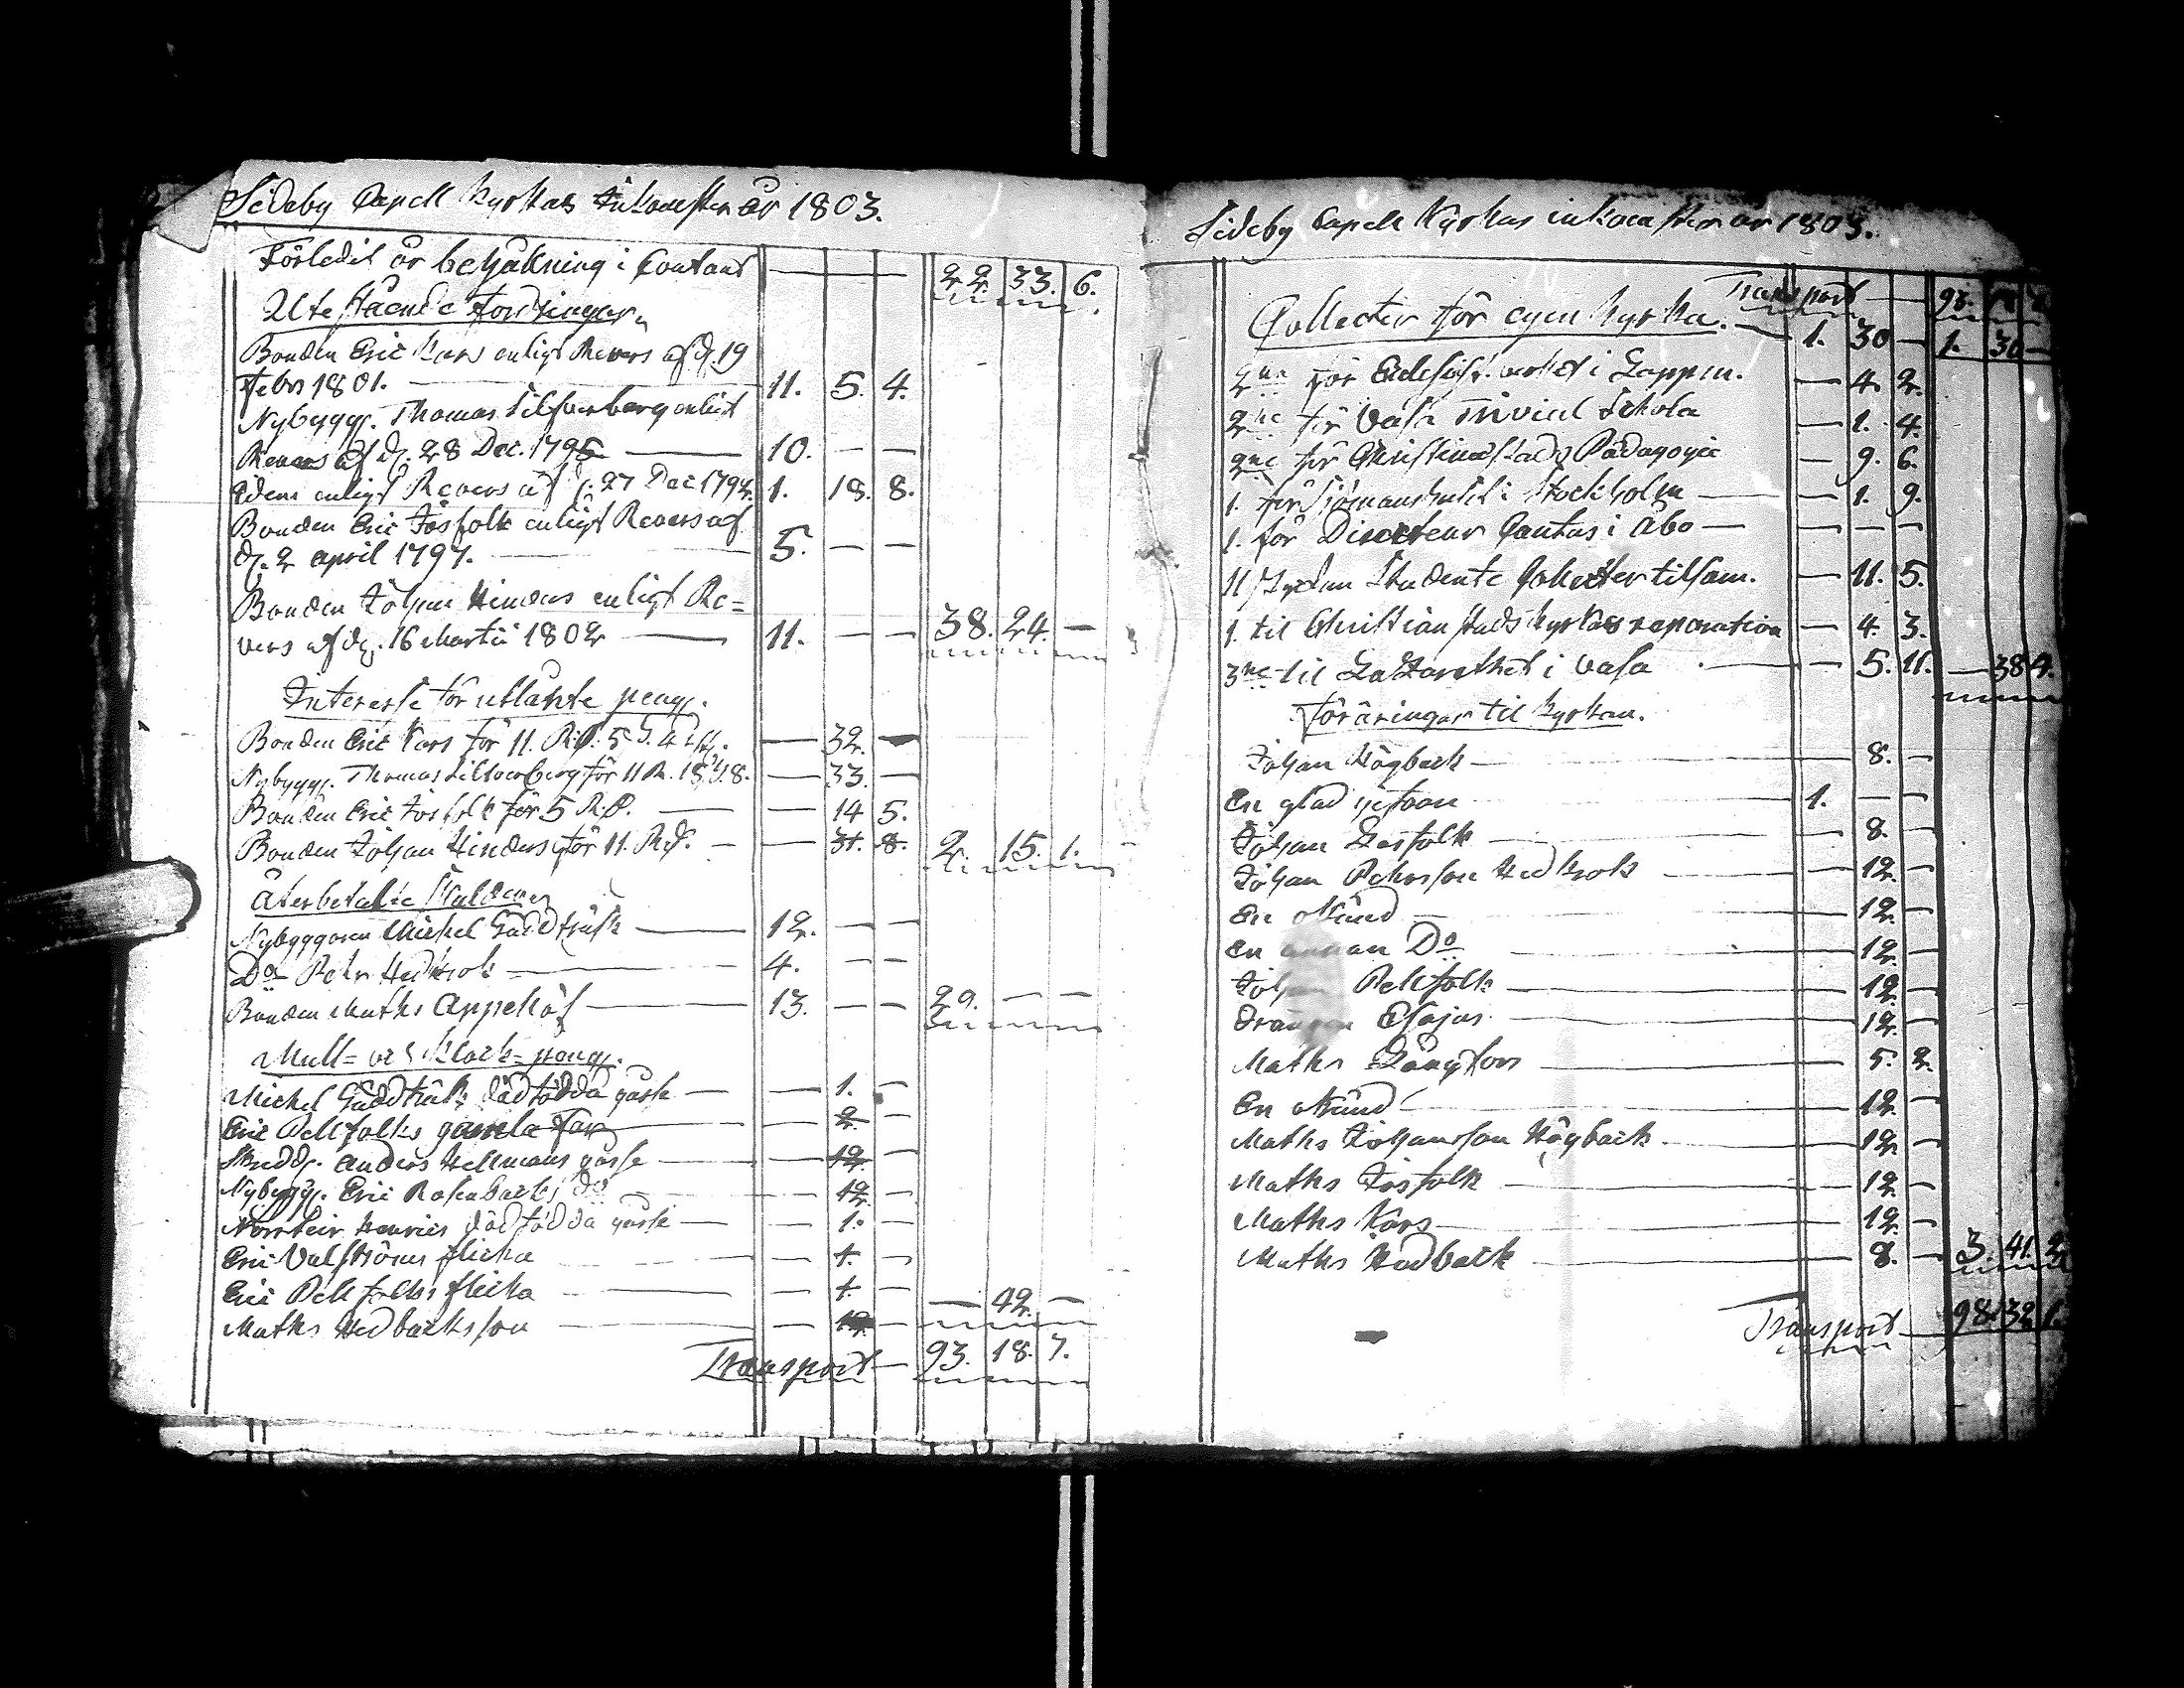 Sideby Capell Kyrkas Inkomster år 1803.
Förledit år behåkning i Contant — 22. 33. 6.
Utestående Fordringar,
Bonden Eric Kars enligt Revers af d. 19
Febr 1801. — 11. 5. 4.
Nybygg. Thomas Silfverberg enligt
Revers af d. 28 Dec. 1795 — 10. — —
Idem enligt Revers af d. 27 Dec 1794. 1. 18. 8.
Bonden Eric Josfolk enligt Revers af
d. 2 april 1797. — 5. — —
Bonden Johan Hinders enligt Re=
vers af d. 16 Martii 1802 — 11. — — 38. 24. —
Interesse för utlånte peng.
Bonden Eric Kars för 11. R.d. 5 s. 4 — 32. —
Nybygg. Thomas Silfverberg för 11 R. 18 s. 8. — 33. —
Bonden Eric Josfolk för 5 R.d. — 14 5.
Bonden Johan Hinders för 11. R.d. — — 31. 8. 2. 15. 1.
Återbetalte Skulder
Nybyggaren Michel Gäddträsk — 12. — —
Do Petr Hedkrok — 4. — —
Bonden Maths Appellöf — 13. — — 29. — —
Mull= och Klock= peng.
Michel Gäddträsk dödfödda gosse — — 1. —
Eric Pellfolks gamla Far — 2. —
Skredd. Anders Hellmans gosse — — 12. —
Nybygg. Eric Rosenbacks do — 12. —
Henrics dödfödda gosse — — 1. —
Eric Valströms flicka — — 1. —
Eric Pellfolks flicka — — 1. — — 42. —
Maths Hedbacks son — — 12. —
Transport — 93. 18. 7.
Sideby Capell Kyrkas inkomster år 1803.
Transport — 93.
Collecter för egen Kyrka. — 1. 30 — 1. 30 —
2ne för i Lappm. — 4. 2.
2ne för Vasa Trivial Schola — 1. 4.
2ne för Christinæstads Pädagogie — 9. 6.
1. för Sjömanshuset i Stockholm — — 1. 9.
1. för Directeur Cantus i Åbo — — — —
11 Studente Collecter tilsam. — 11. 5.
1. til Christianstads Kyrkas reparation — 4. 3.
3ne til Lazarethet i Vasa — — 5. 11. — 38 4.
Föräringar til Kyrkan.
Johan Högback — 8. —
En glad gifvare 1. — —
Johan Josfolk — — 8. —
Johan Pehrsson Hedkrok — — 12. —
En okänd — — 12. —
En annan Do — — 12. —
Johan Pellfolk — — 12. —
Drängen Esajas — — 12. —
Maths Långfors — — 5. 2.
En okänd — — 12. —
Maths Johansson Högback — — 12. —
Maths Josfolk — — 12. —
Maths Kårs — — 12. —
Maths Hedback — — 8. — 3. 41. 2.
Transport — 98. 32. 1.